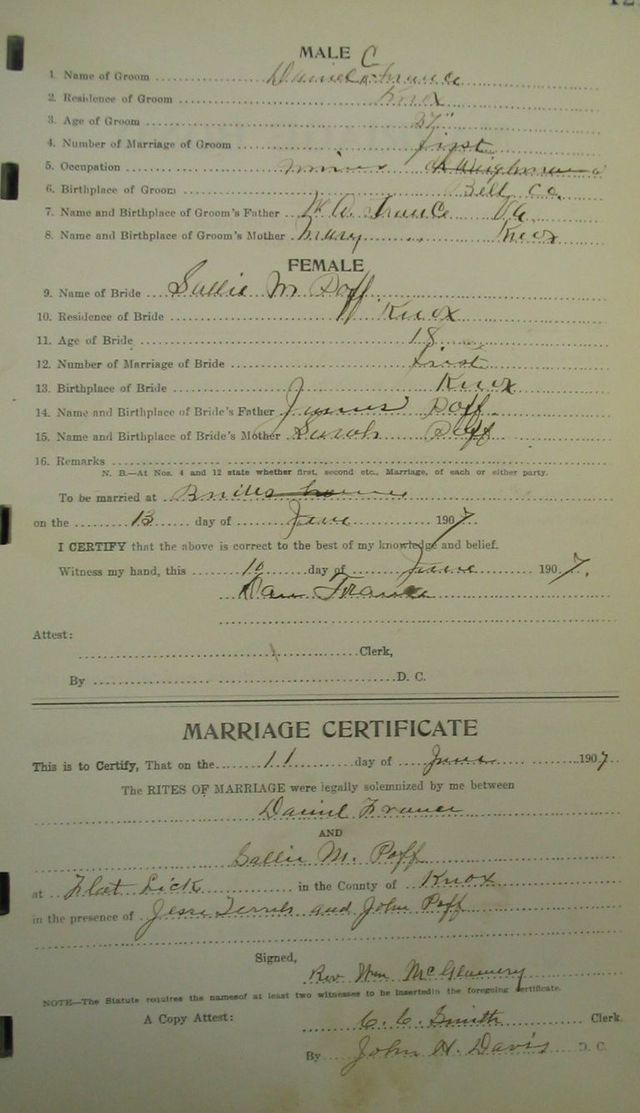 MALE
1. Name of Groom Daniel C France
2. Residence of Groom Knox
3. Age of Groom 27
4. Number of Marriage of Groom first
5. Occupation
6. Birthplace of Groom Bell Co.
7. Name and Birthplace of Groom's Father France Va
8. Name and Birthplace of Groom's Mother Mary Knox
FEMALE
9. Name of Bride Sallie M Poff
10. Residence of Bride Knox
11. Age of Bride 18
12. Number of Marriage of Bride first
13. Birthplace of Bride Knox
14. Name and Birthplace of Bride's Father James Poff
15. Name and Birthplace of Bride's Mother Sarah Poff
16. Remarks
N. B.—At Nos. 4 and 12 state whether first, second etc., Marriage, of each or either party.
To be married at Brides home
on the 13 day of June 1907
I CERTIFY that the above is correct to the best of my knowledge and belief.
Witness my hand, this 10 day of June 1907.
Dan France
Attest:
Clerk,
By D. C.
MARRIAGE CERTIFICATE
This is to Certify, That on the 11 day of June 1907
The RITES OF MARRIAGE were legally solemnized by me between
Daniel France
AND
Sallie M. Poff
at Flat Lick in the County of Knox
in the presence of Jesse and John Poff
Signed,
Rev Wm McGlamery
NOTE—The Statute requires the namesof at least two witnesses to be insertedin the foregoing certificate.
A Copy Attest: C. C. Smith Clerk.
By John H. Davis D. C.